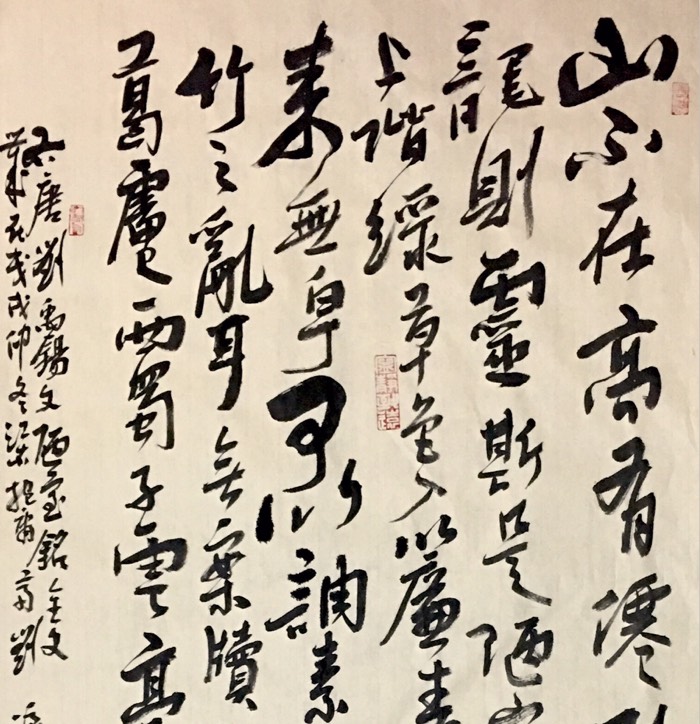 山不在高有僊則
龍則靈斯是陋室
上階緑草色入簾青
来無白丁可以調素
竹之亂耳無案牘
葛廬西蜀子雲亭
唐劉禹錫文陋室銘全文
戊戌仲冬 劉